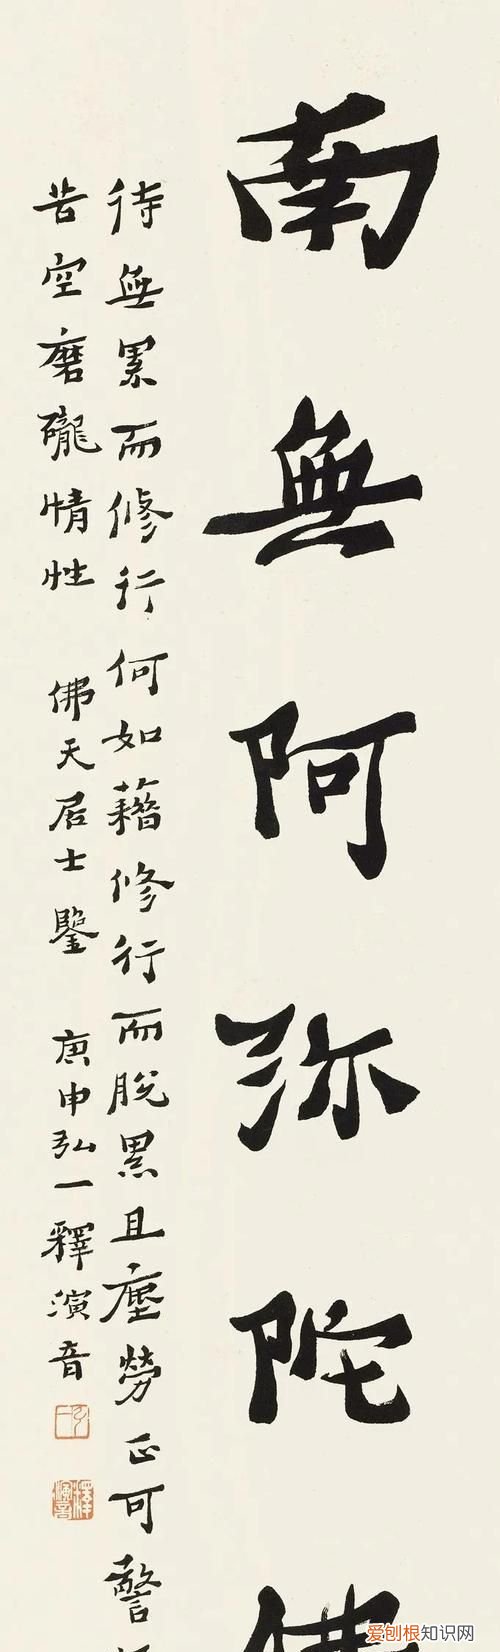 南無阿弥陀佛
待無累而修行何如藉修行而脫累且塵勞正可警
苦空磨礲情性 佛天居士鑒 庚申弘一釋演音
弘一
爱刨根知识网